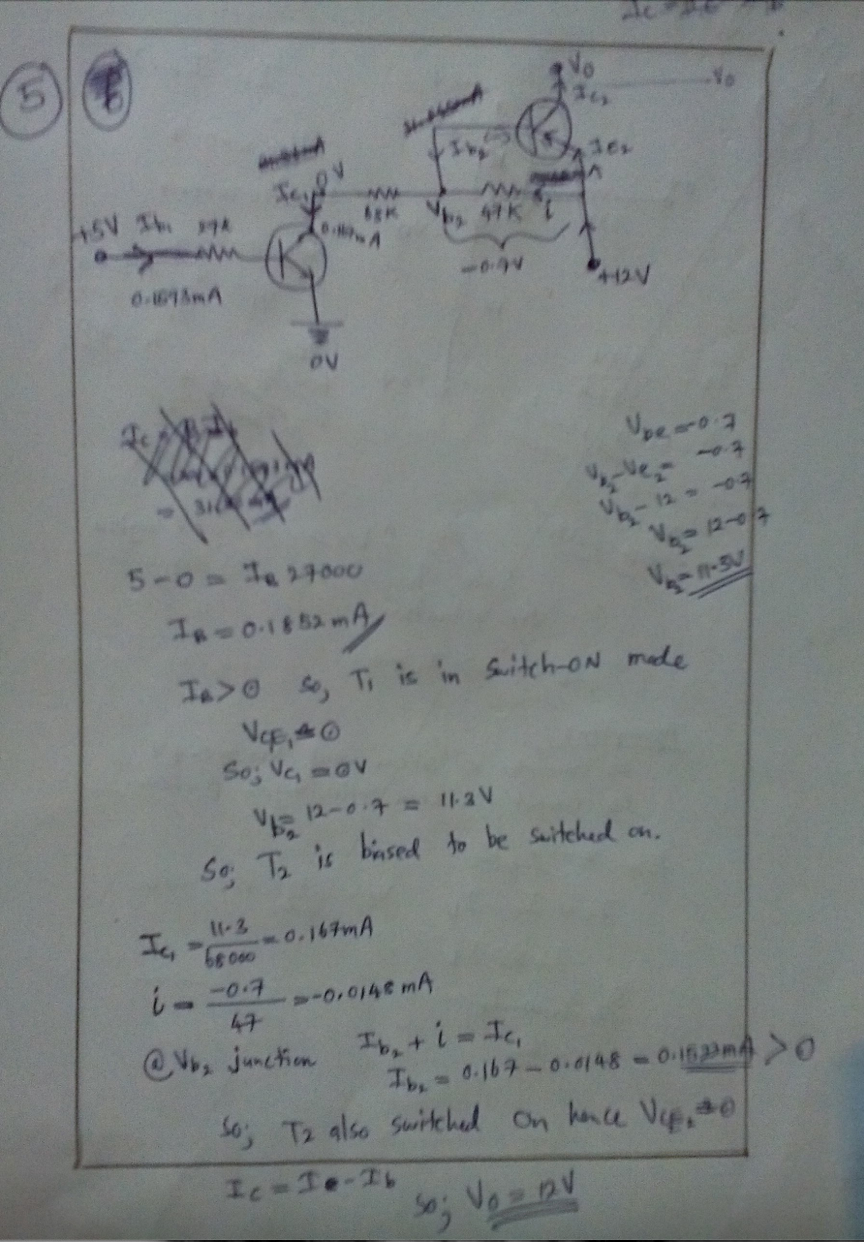 5
V0
V0
Ic2
Ib2
IE2
0V
Ic1
68K
Vb2
47K
i
+5V
Ib1
27K
-0.7V
+12V
0V
Vbe = -0.7
Vb2 - Ve2 = -0.7
Vb2 - 12 = -0.7
Vb2 = 12-0.7
Vb2 = 11.3V
5-0 = IB 27000
IB = 0.1852 mA
IB>0 So, T1 is in Switch-ON mode
VCE1 ≈ 0
So; VC1 = 0V
Vb2 = 12-0.7 = 11.3V
So; T2 is biased to be switched on.
Ic1 = 11.3/68000 = 0.167mA
i = -0.7/47 = -0.0148 mA
@ Vb2 junction Ib2 + i = Ic1
Ib2 = 0.167 - 0.0148 = > 0
So; T2 also switched on hence VCE2 ≈ 0
Ic = Ie - Ib
So; V0 = 12V